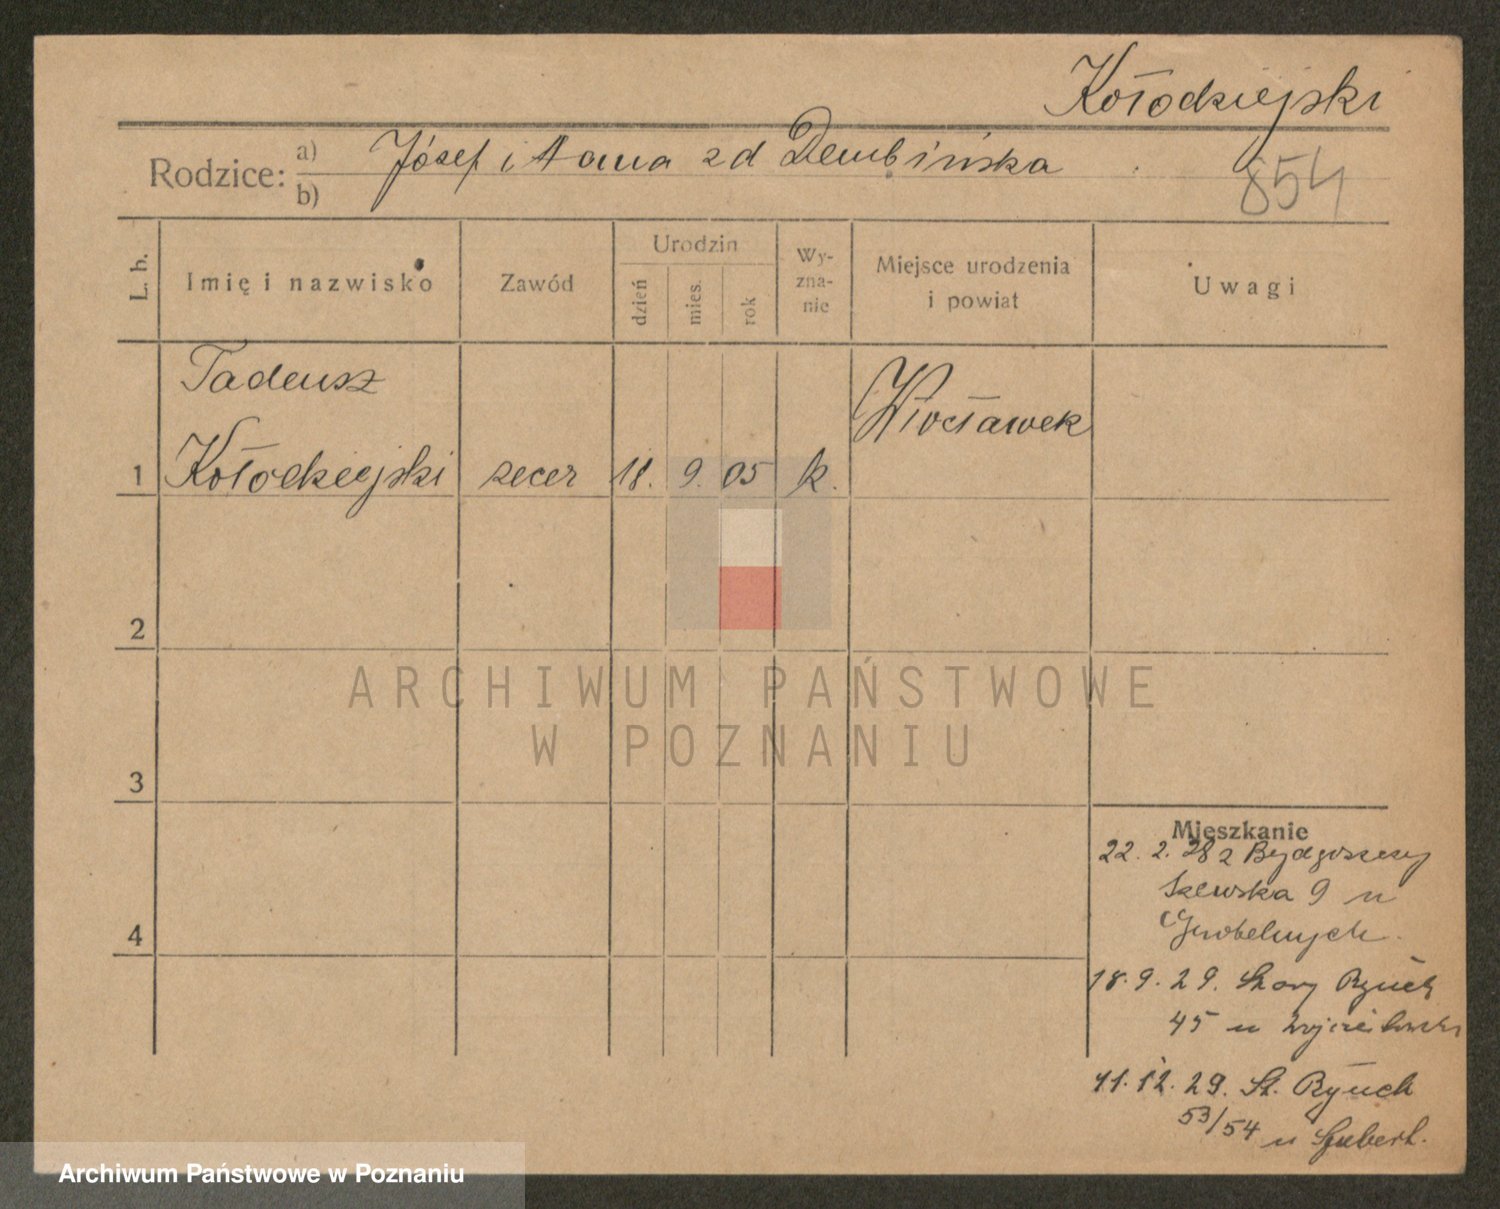 Kołodziejski
Rodzice: a) Józef i Anna zd Dembińska
b)
854
L. b.
Imię i nazwisko
Zawód
Urodzin
dzień
mies.
rok
Wy-
zna-
nie
Miejsce urodzenia
i powiat
Uwagi
Tadeusz
1 Kołodziejski zecer 18. 9. 05 k.
Włocławek
2
3
4
Mieszkanie
22. 2. 28 z Bydgoszczy
Szewska 9 u
Grobelnych.
18. 9. 29. Stary Rynek
45 u
11. 12. 29. St. Rynek
53/54 u Szubert.
ARCHIWUM PAŃSTWOWE
W POZNANIU
Archiwum Państwowe w Poznaniu